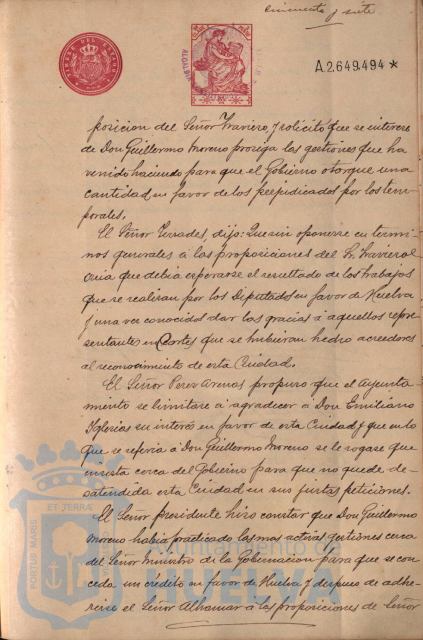 cincuenta y siete
A2.649.494*
posicion del Señor Traviero, y solicitó que se interese
de Don Guillermo Moreno prosiga las gestiones que ha
venido haciendo para que el Gobierno otorgue una
cantidad en favor de los perjudicados por los tem-
porales.
El Señor Terrades, dijo: Que sin oponerse en termi-
nos generales á las proposiciones del Sr. Traviero
creia que debia esperarse el resultado de los trabajos
que se realizan por los Diputados en favor de Huelva
y una vez conocidos dar las gracias á aquellos repre-
sentantes en Cortes que se hubieran hecho acreedores
al reconocimiento de esta Ciudad.
El Señor Perez Arenas propuso que el Ayunta-
miento se limitare á agradecer á Don Emiliano
Iglesias su interés en favor de esta Ciudad y que en lo
que se referia á Don Guillermo Moreno se le rogase que
insista cerca del Gobierno para que no quede de-
satendida esta Ciudad en sus justas peticiones.
El Señor Presidente hizo constar que Don Guillermo
Moreno habia practicado las mas activas gestiones cerca
del Señor Ministro de la Gobernacion para que se con-
ceda un crédito en favor de Huelva y despues de adhe-
rirse el Señor Alhamar á las proposiciones de Señor
PORTUS MARIS
ET TERRÆ
Ayuntamiento de
HUELVA